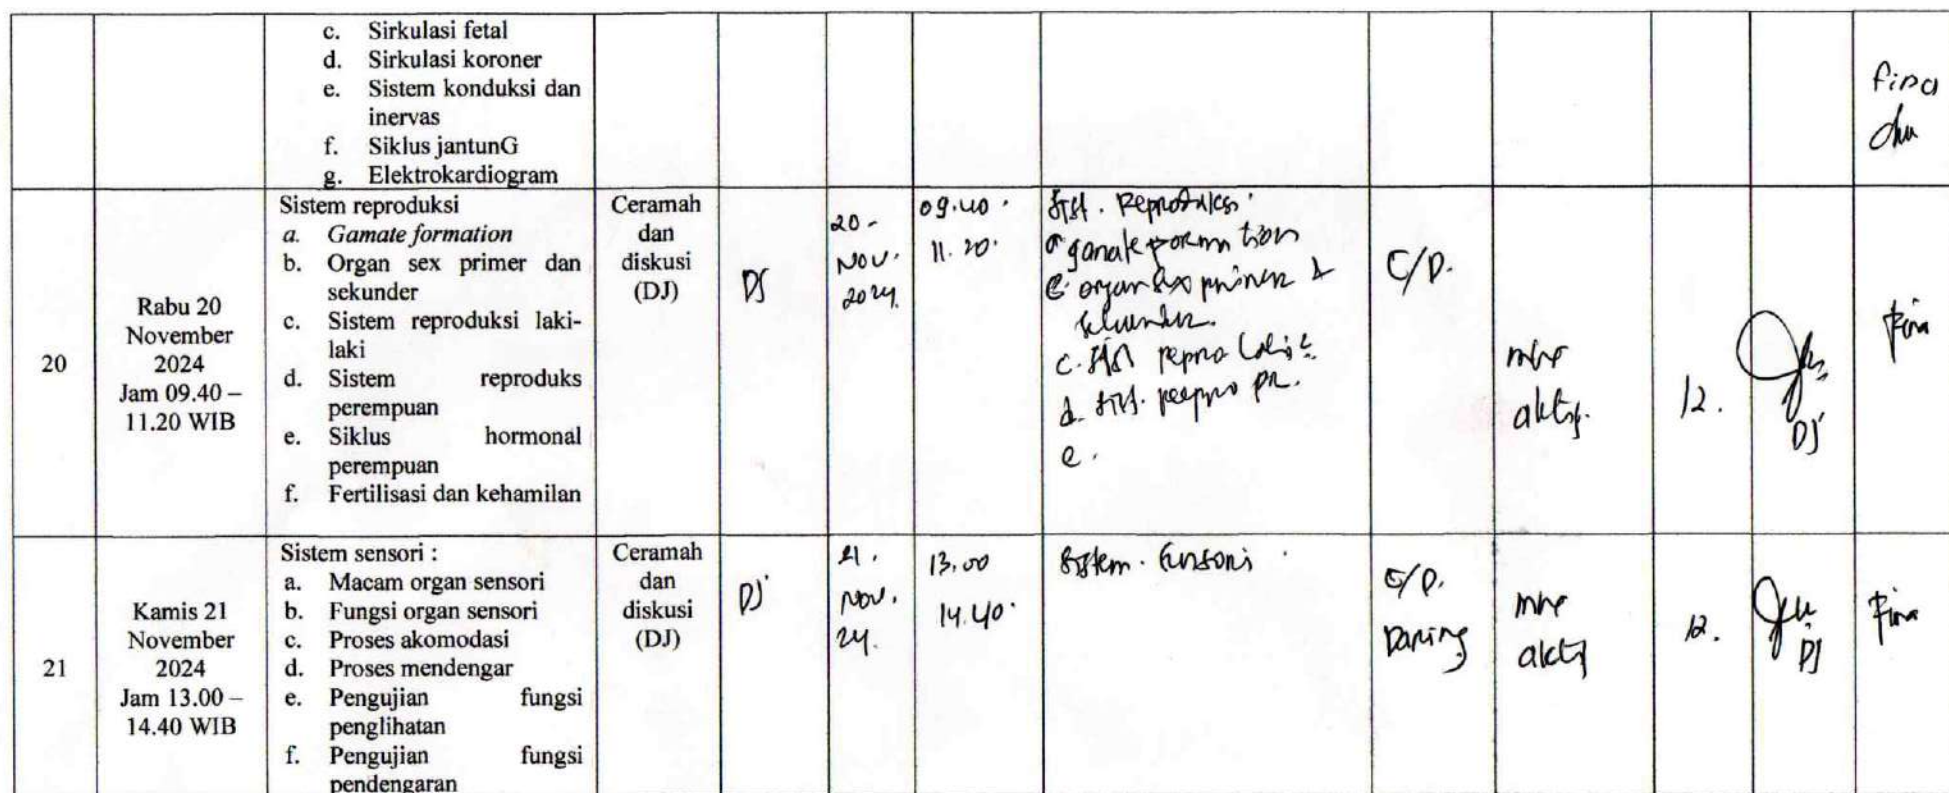 c. Sirkulasi fetal
d. Sirkulasi koroner
e. Sistem konduksi dan
inervas
f. Siklus jantunG
g. Elektrokardiogram
20
Rabu 20
November
2024
Jam 09.40 –
11.20 WIB
Sistem reproduksi
a. Gamate formation
b. Organ sex primer dan
sekunder
c. Sistem reproduksi laki-
laki
d. Sistem reproduks
perempuan
e. Siklus hormonal
perempuan
f. Fertilisasi dan kehamilan
Ceramah
dan
diskusi
(DJ)
DJ
20-
Nov.
2024.
09.40.
11.20.
Sist. Reproduksi.
organ sex primer &
sekunder.
c. sist repro laki2
d. sist. repro pr.
e.
C/D.
mhs
aktif.
12.
DJ
Fina
21
Kamis 21
November
2024
Jam 13.00 –
14.40 WIB
Sistem sensori :
a. Macam organ sensori
b. Fungsi organ sensori
c. Proses akomodasi
d. Proses mendengar
e. Pengujian fungsi
penglihatan
f. Pengujian fungsi
pendengaran
Ceramah
dan
diskusi
(DJ)
DJ
21.
Nov.
24.
13.00
14.40.
Sistem. sensori.
C/D.
Daring
mhs
aktif
12.
DJ
Fina